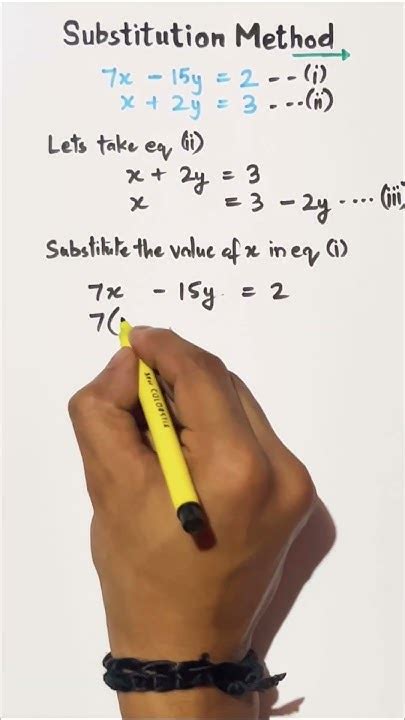 Substitution Method
7x - 15y = 2 -- (i)
x + 2y = 3 ---(ii)
Lets take eq (ii)
x + 2y = 3
x = 3 - 2y ---- (iii)
Substitute the value of x in eq (i)
7x - 15y = 2
7(